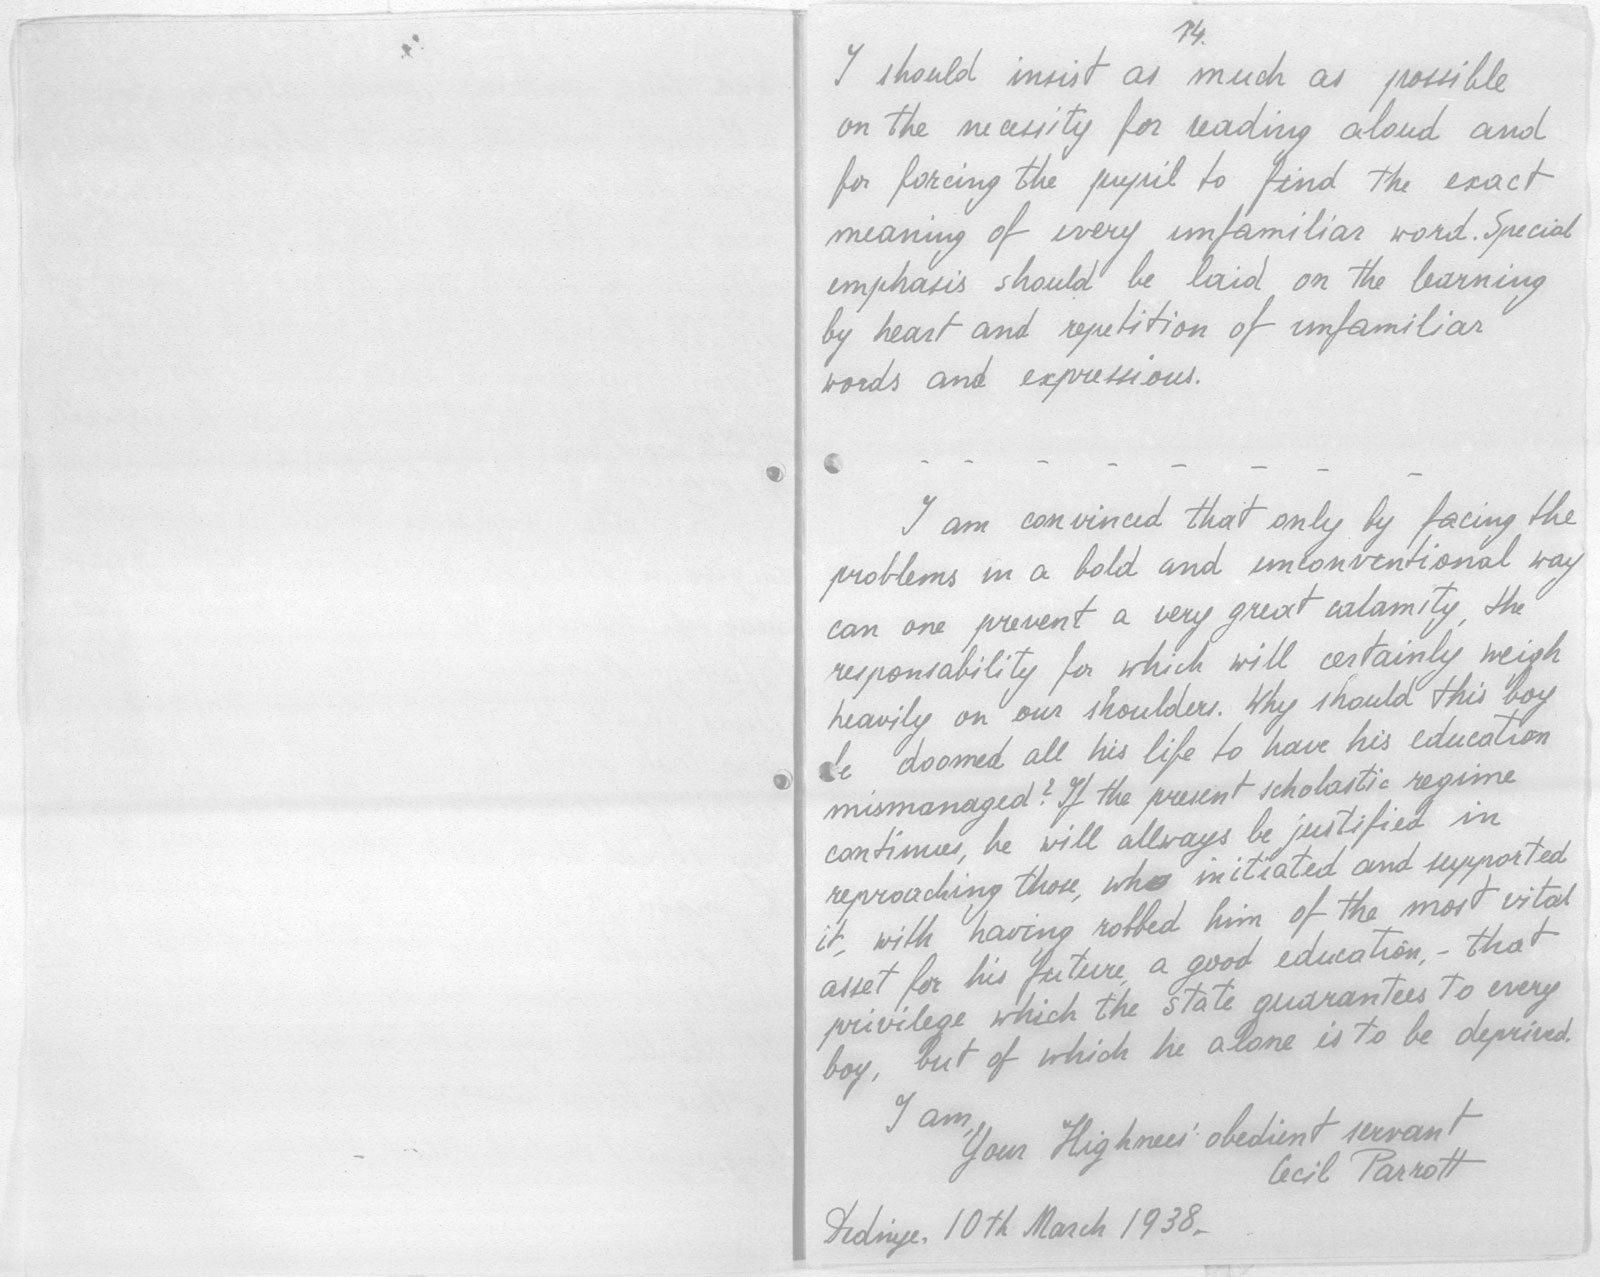 14.
I should insist as much as possible
on the necessity for reading aloud and
for forcing the pupil to find the exact
meaning of every unfamiliar word. Special
emphasis should be laid on the learning
by heart and repetition of unfamiliar
words and expressions.
- - - - - - - -
I am convinced that only by facing the
problems in a bold and unconventional way
can one prevent a very great calamity, the
responsability for which will certainly weigh
heavily on our shoulders. Why should this boy
be doomed all his life to have his education
mismanaged? If the present scholastic regime
continues, he will allways be justified in
reproaching those, who initiated and supported
it, with having robbed him of the most vital
asset for his future, a good education, - that
privilege which the state guarantees to every
boy, but of which he alone is to be deprived.
I am,
Your Highness' obedient servant
Cecil Parrott
Dedinje. 10th March 1938.-